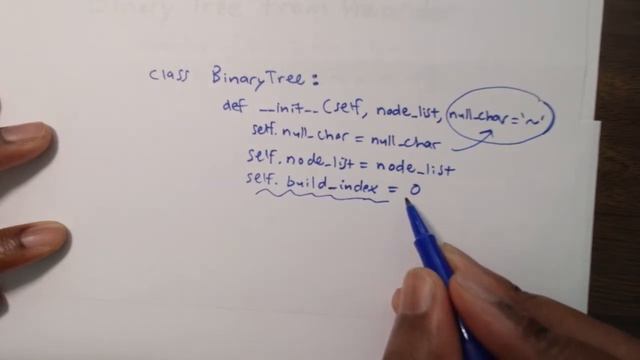 class BinaryTree:
def __init__(self, node_list, null_char='~')
self.null_char = null_char
self.node_list = node_list
self.build_index = 0